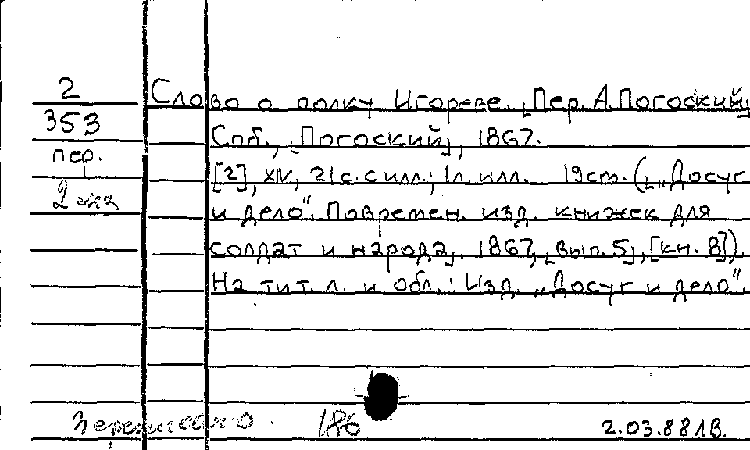 2
353
пер.
2 экз
Слово о полку Игореве. [Пер. А. Погоский]
Спб., [Погоский], 1867.
[2], XIV, 21 с. с илл.; 1 л. илл. 19 cm. („Досуг
и дело". Повремен. изд. книжек для
солдат и народа, 1867, [вып. 5], [кн. 8]).
На тит. л. и обл.: Изд. „Досуг и дело".
Переписано. 186 2.03.88